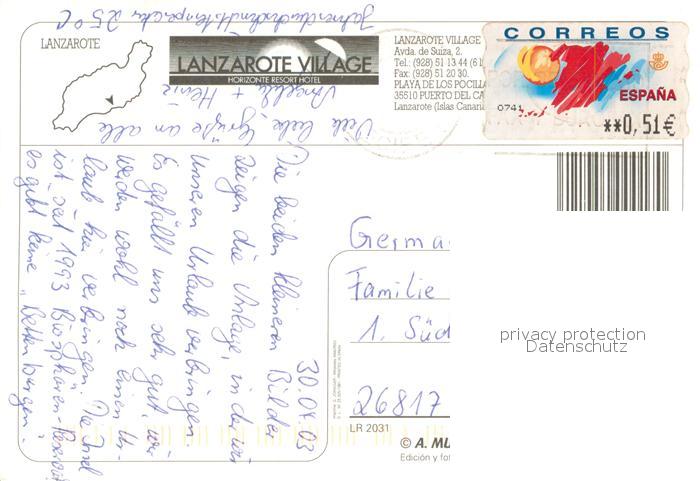 LANZAROTE
LANZAROTE VILLAGE
HORIZONTE RESORT HOTEL
LANZAROTE VILLAGE
Avda. de Suiza, 2.
Tel.: (928) 51 13 44
Fax: (928) 51 20 30.
PLAYA DE LOS
35510 PUERTO DEL
Lanzarote (Islas
CORREOS
ESPAÑA
0741
**0,51€
30.04.03
Die beiden kleineren Bilder
zeigen die Anlage, in der wir
unseren Urlaub verbringen
Es gefällt uns sehr gut, wir
werden wohl noch einen Ur-
laub hier verbringen. Die Insel
ist seit 1993 Biosphären-Reservat
es gibt keine "Bettenburgen".
Jahresdurchschnittstemperatur 25°C
Viele liebe Grüße an alle
+ Heinz
Familie
1. Süd
26817
LR 2031
© A.
Edición y
privacy protection
Datenschutz